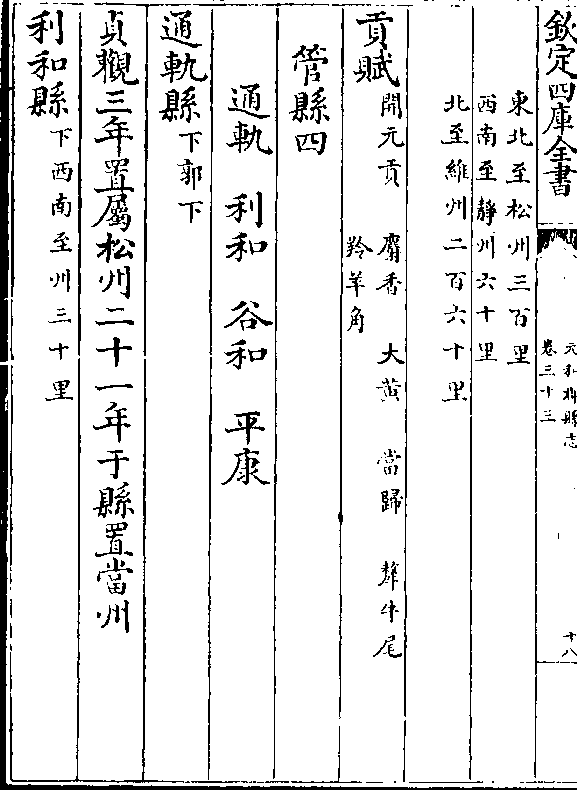 欽定四庫全書
元和郡縣志
卷三十三
十八
東北至松州三百里
西南至靜州六十里
北至維州二百六十里
貢賦開元貢 麝香 大黃 當歸 犛牛尾
羚羊角
管縣四
通軌 利和 谷和 平康
通軌縣下郭下
貞觀三年置屬松州二十一年于縣置當州
利和縣下西南至州三十里